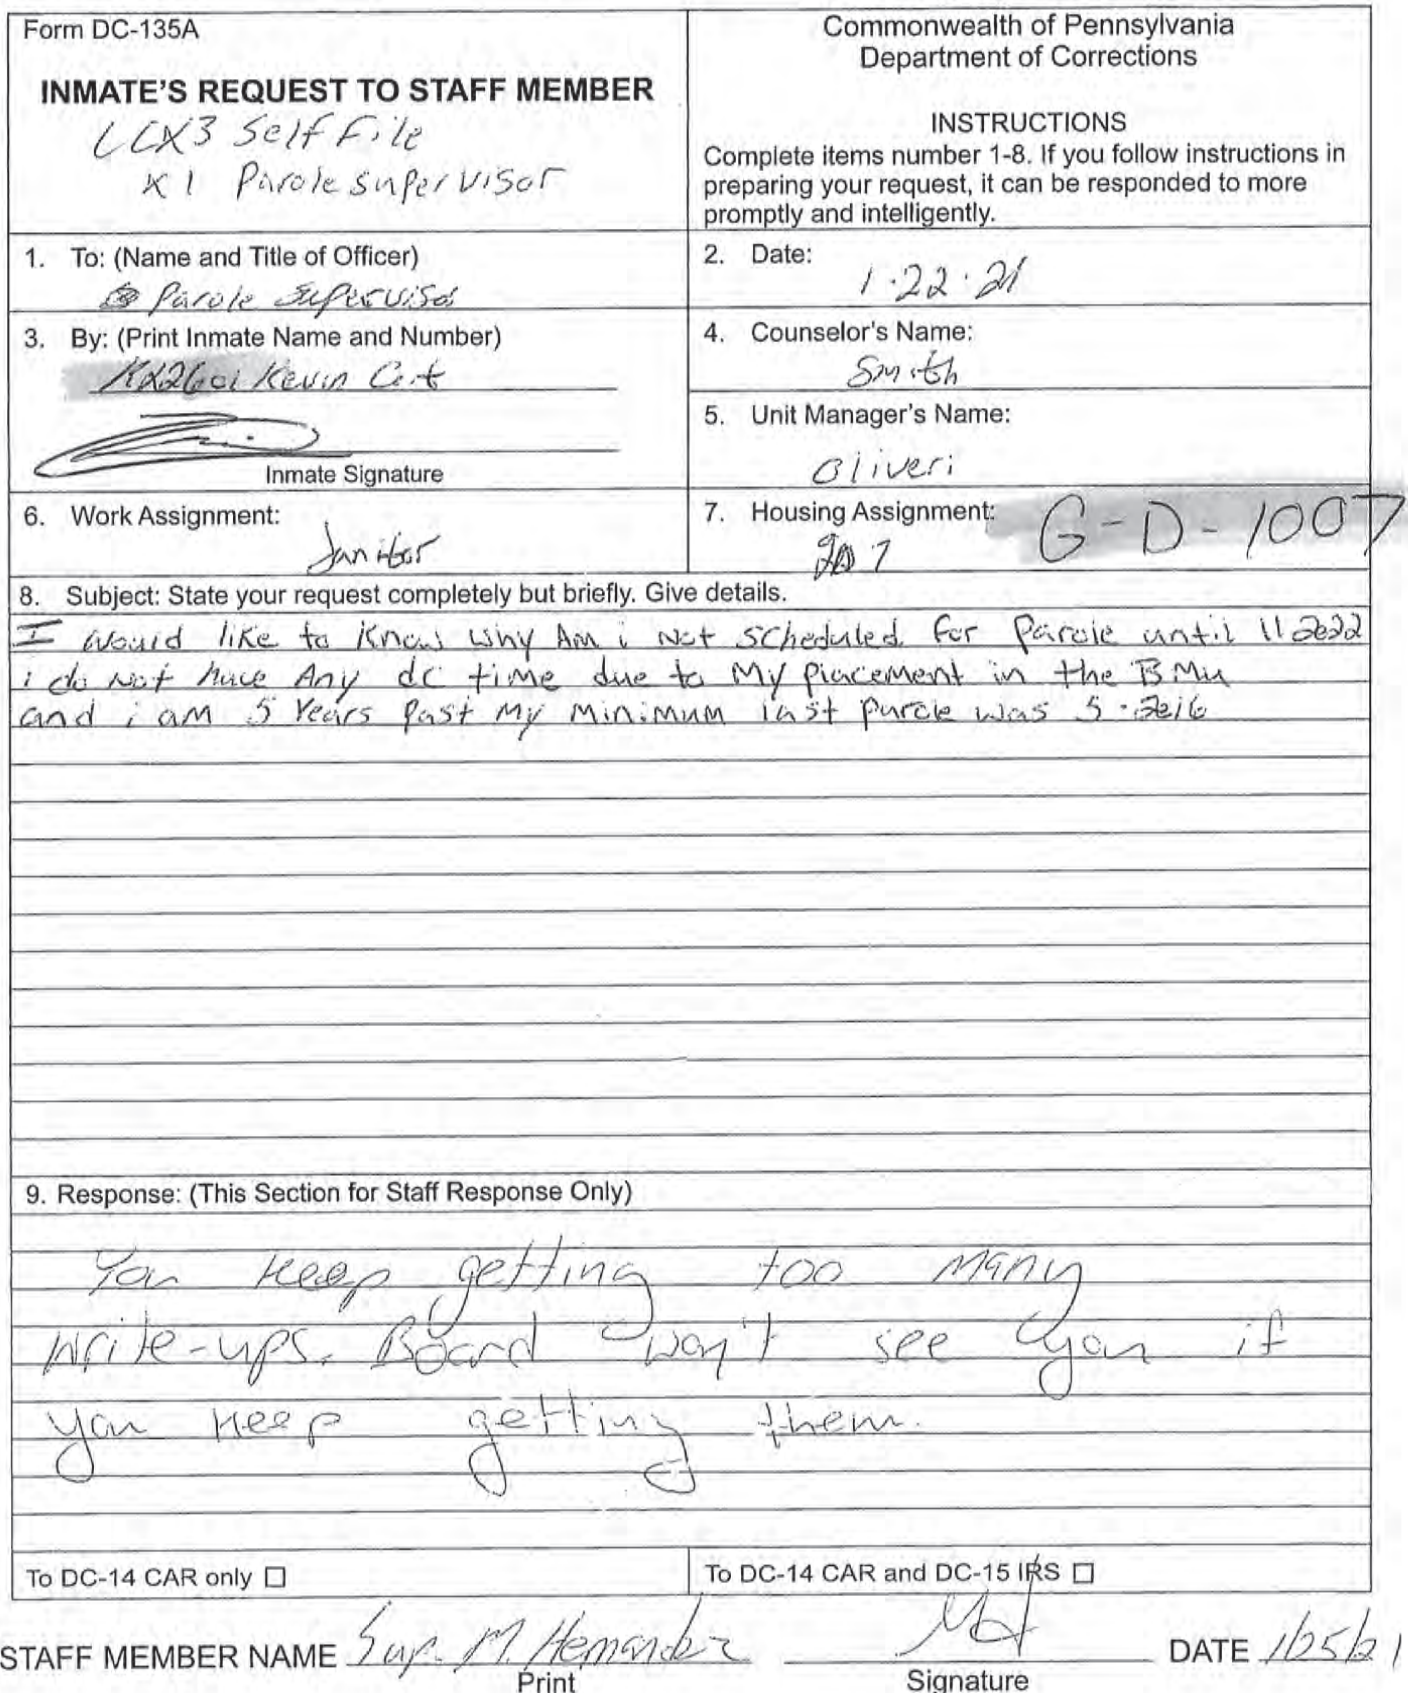 Form DC-135A
Commonwealth of Pennsylvania
Department of Corrections
INMATE'S REQUEST TO STAFF MEMBER
CCX3 Self File
X1 Parole supervisor
INSTRUCTIONS
Complete items number 1-8. If you follow instructions in
preparing your request, it can be responded to more
promptly and intelligently.
1. To: (Name and Title of Officer)
Parole Supervisor
2. Date:
1.22.21
3. By: (Print Inmate Name and Number)
Kevin
4. Counselor's Name:
Smith
Inmate Signature
5. Unit Manager's Name:
Oliveri
6. Work Assignment:
Janitor
7. Housing Assignment:
G-D-1007
8. Subject: State your request completely but briefly. Give details.
I would like to Know why Am i Not scheduled for Parole until 11 2022
i do Not have Any dc time due to My placement in the BMu
and i am 5 Years past My Minimum last parole was 5.2016
9. Response: (This Section for Staff Response Only)
You keep getting too many
write-ups. Board won't see you if
you keep getting them.
To DC-14 CAR only ☐
To DC-14 CAR and DC-15 IRS ☐
STAFF MEMBER NAME Sup. M. Hernandez DATE 1/25/21
Print Signature